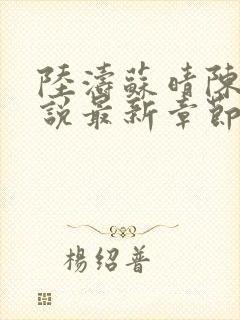 陸濤蘇晴陳
說最新章節
楊紹普